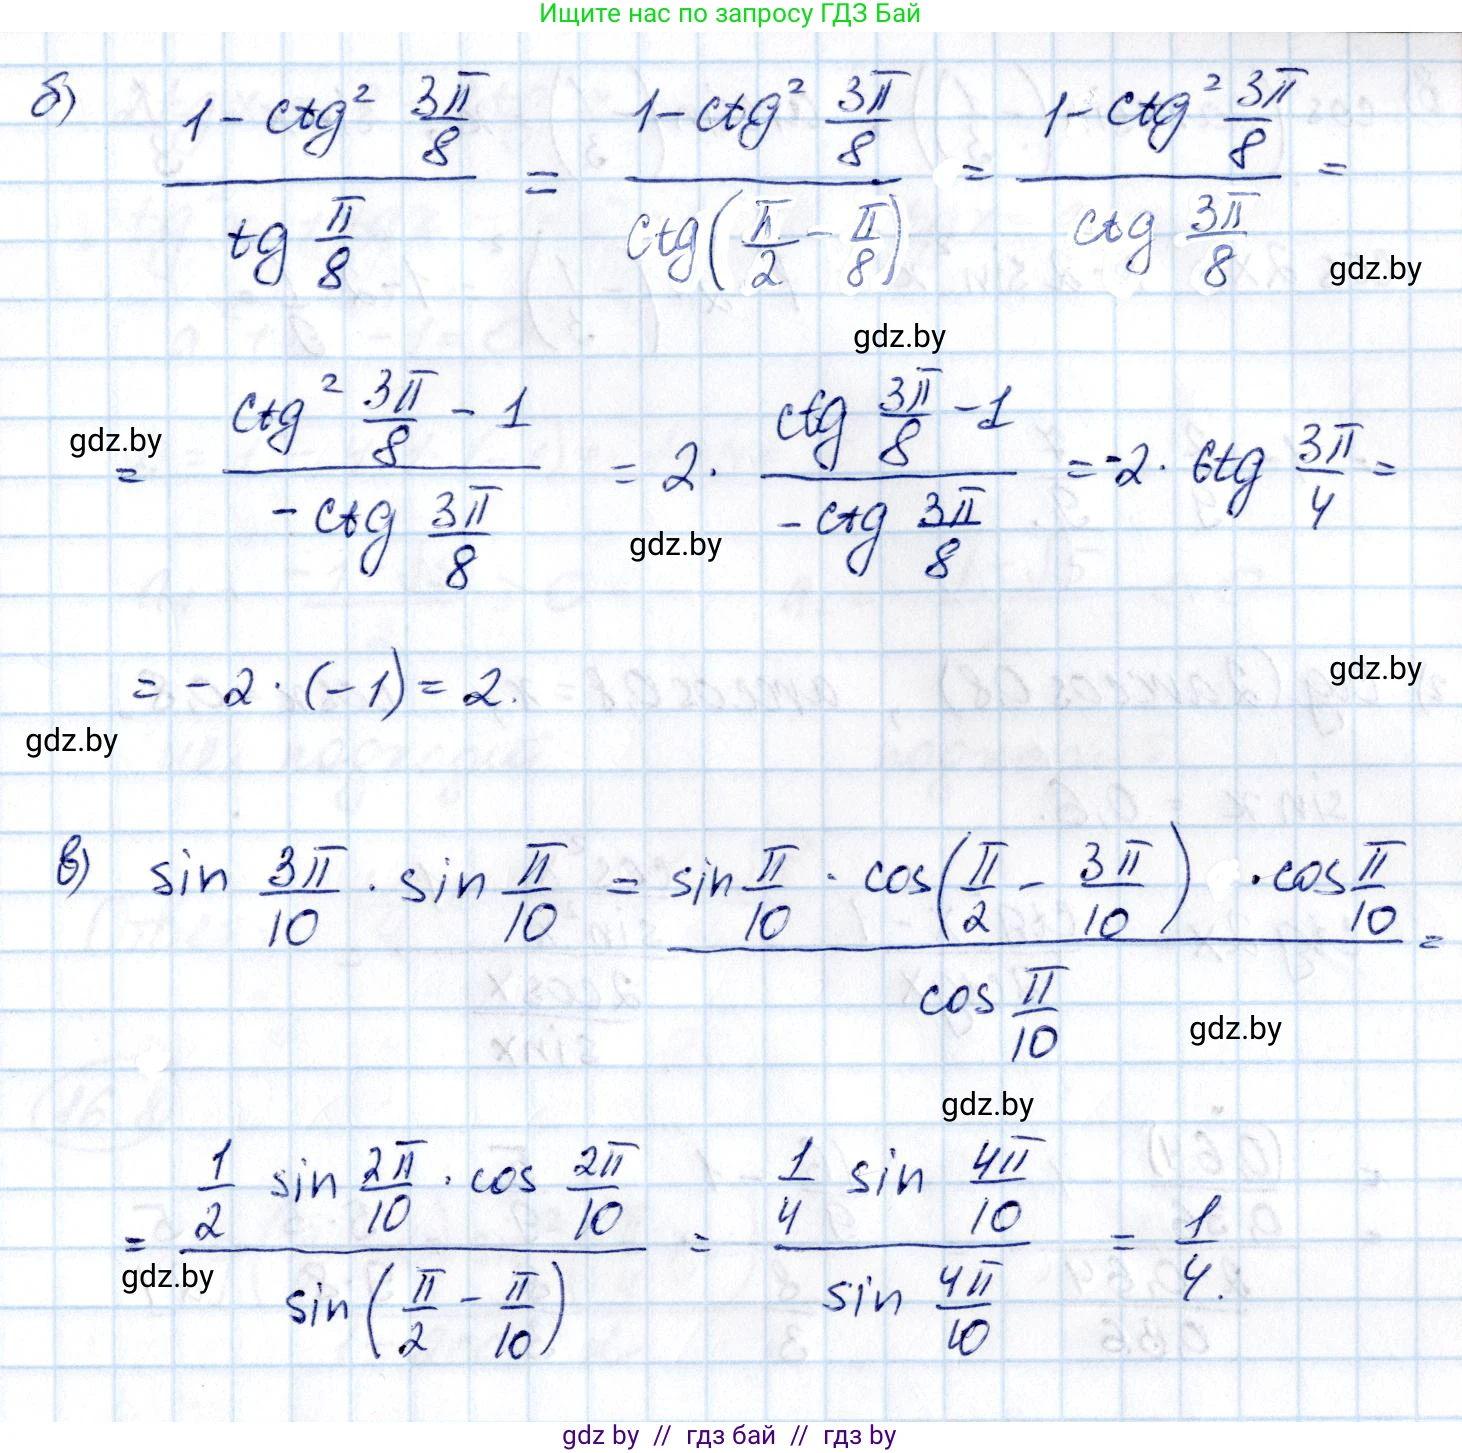 Ищите нас по запросу ГДЗ Бай
б) (1 - ctg² 3π/8) / (tg π/8) = (1 - ctg² 3π/8) / (ctg(π/2 - π/8)) = (1 - ctg² 3π/8) / (ctg 3π/8) =
gdz.by
gdz.by
gdz.by
= (ctg² 3π/8 - 1) / (- ctg 3π/8) = 2 · (ctg 3π/8 - 1) / (- ctg 3π/8) = -2 · ctg 3π/4 =
gdz.by
= -2 · (-1) = 2.
gdz.by
gdz.by
в) sin 3π/10 · sin π/10 = (sin π/10 · cos(π/2 - 3π/10) · cos π/10) / (cos π/10) =
gdz.by
gdz.by
= (1/2 sin 2π/10 · cos 2π/10) / (sin(π/2 - π/10)) = (1/4 sin 4π/10) / (sin 4π/10) = 1/4.
gdz.by
gdz by // гдз бай // гдз by